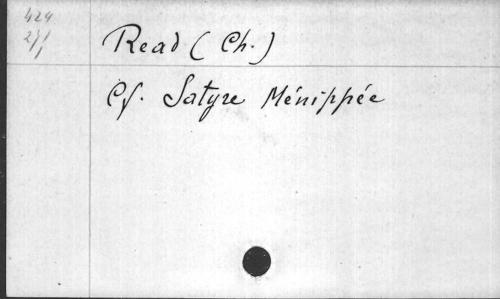 424
Read (Ch.)
Cf. Satyre Ménippée